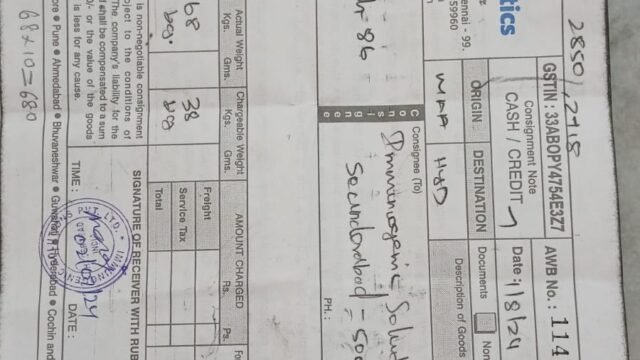 2850/, 2418
tics
ennai - 99.
759960
GSTIN : 33ABOPY4754E3Z7
AWB No. : 114
Consignment Note
CASH / CREDIT
Date : 1/8/24
ORIGIN
DESTINATION
Documents
Non
MAA
HYD
Description of Goods
Consignee (To)
Immunogenic Solut
Secunderabad - 500
PH. :
- 86
Actual Weight
Kgs.
Gms.
Chargeable Weight
Kgs.
Gms.
AMOUNT CHARGED
Rs.
Ps.
68
kg.
38
kg
Freight
Service Tax
Total
Fo
is non-negotiable consignment
bject to the conditions of
The company's liability for the
shall be compensated to a sum
0/- or the value of the goods
is less for any cause.
SIGNATURE OF RECEIVER WITH RUB
TIME :
DATE :
02/08/24
ore ● Pune ● Ahmedabad ● Bhuvaneshwar ● Guwahati ● Hyderabad ● Cochin and
68x10=680